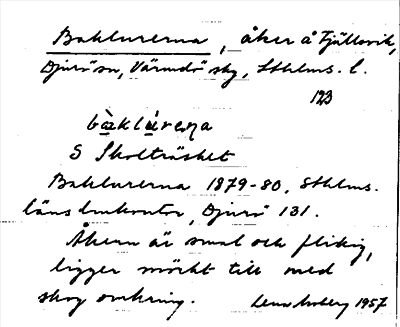 Baklurerna, åker å Fjällsvik,
Djurö sn, Värmdö skg, Sthlms. l.
123
bàklúrena
S Skolträsket
Baklurerna 1879-80, Sthlms.
läns lmkontor, Djurö 131.
Åkern är smal och flikig,
ligger mörkt till med
skog omkring. 1957